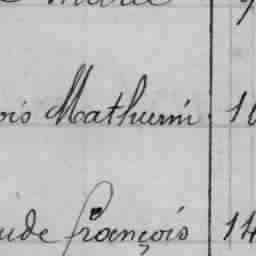 ois Mathurin 10
ude françois 14